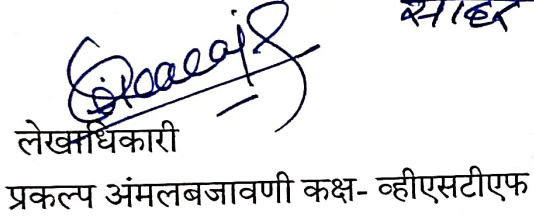 सादर
लेखाधिकारी
प्रकल्प अंमलबजावणी कक्ष- व्हीएसटीएफ